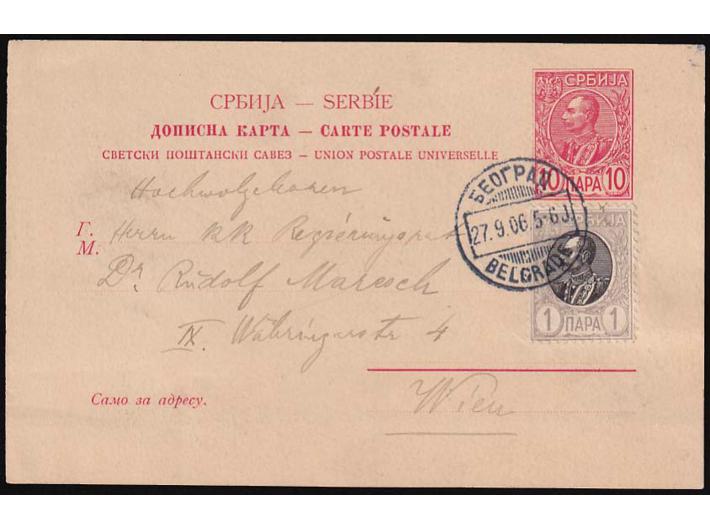 СРБИЈА — SERBIE
ДОПИСНА КАРТА — CARTE POSTALE
СВЕТСКИ ПОШТАНСКИ САВЕЗ – UNION POSTALE UNIVERSELLE
СРБИЈА
10 ПАРА 10
Hochwolgeboren
Г.
М.
Herrn KK Regierungsrat
Dr Rudolf Maresch
IX. Währingerstr 4
Wien
БЕОГРАД
27.9.06.5-6
BELGRADE
СРБИЈА
1 ПАРА 1
Само за адресу.